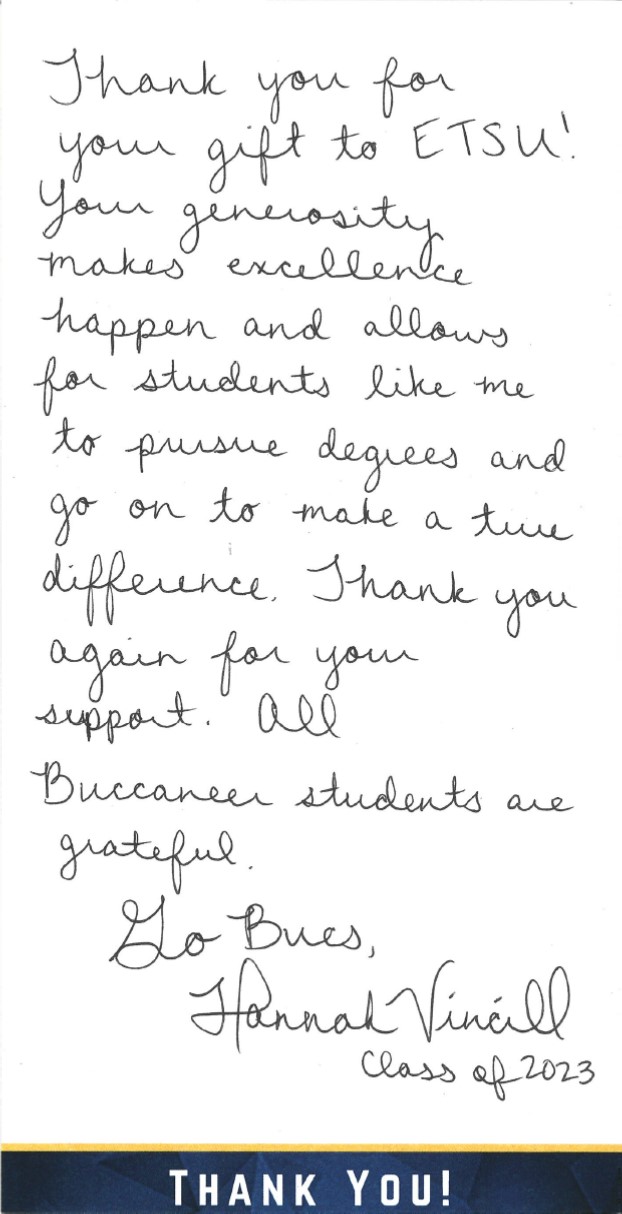 Thank you for
your gift to ETSU!
Your generosity
makes excellence
happen and allows
for students like me
to pursue degrees and
go on to make a true
difference. Thank you
again for your
support. All
Buccaneer students are
grateful.
Go Bucs,
Hannah Vincill
Class of 2023
THANK YOU!